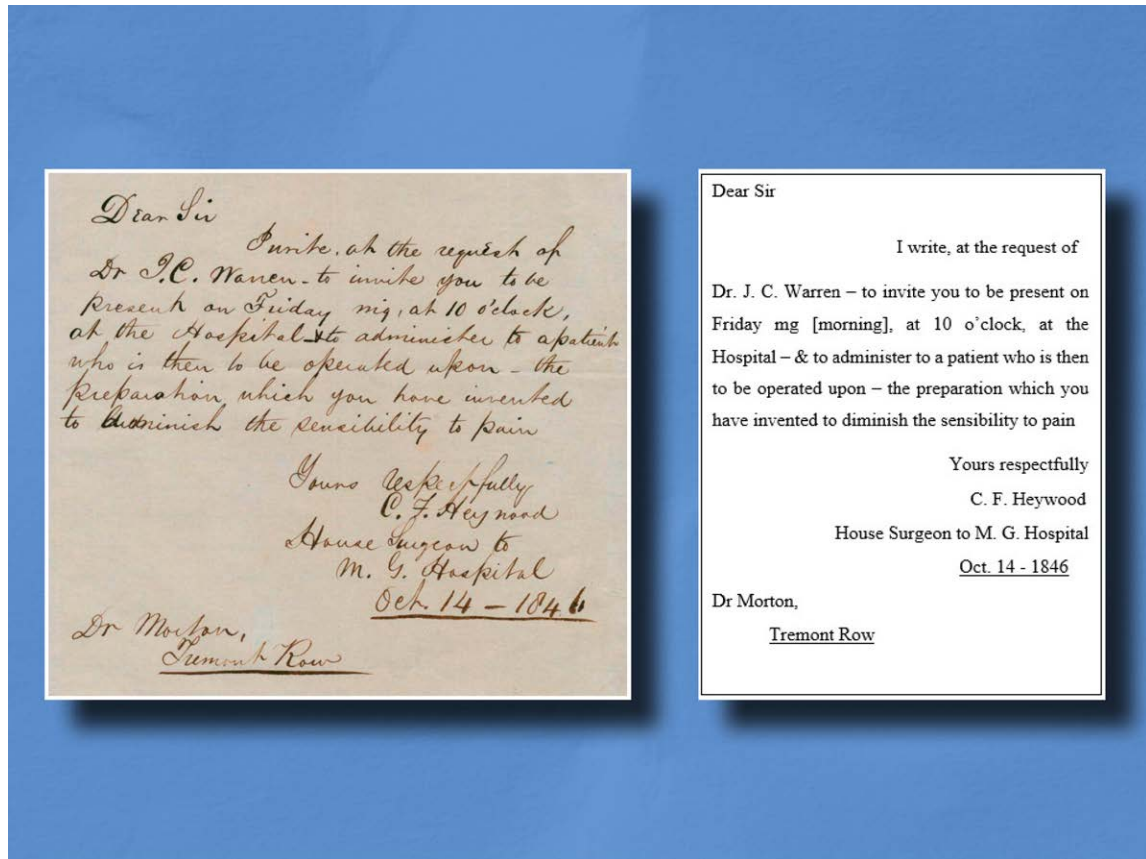 Dear Sir
I write, at the request of
Dr J. C. Warren - to invite you to be
present on Friday mg, at 10 o'clock,
at the Hospital - & to administer to a patient
who is then to be operated upon - the
preparation which you have invented
to diminish the sensibility to pain
Yours respectfully
C. F. Heywood
House Surgeon to
M. G. Hospital
Oct. 14 - 1846
Dr Morton,
Tremont Row
Dear Sir
I write, at the request of
Dr. J. C. Warren – to invite you to be present on
Friday mg [morning], at 10 o’clock, at the
Hospital – & to administer to a patient who is then
to be operated upon – the preparation which you
have invented to diminish the sensibility to pain
Yours respectfully
C. F. Heywood
House Surgeon to M. G. Hospital
Oct. 14 - 1846
Dr Morton,
Tremont Row